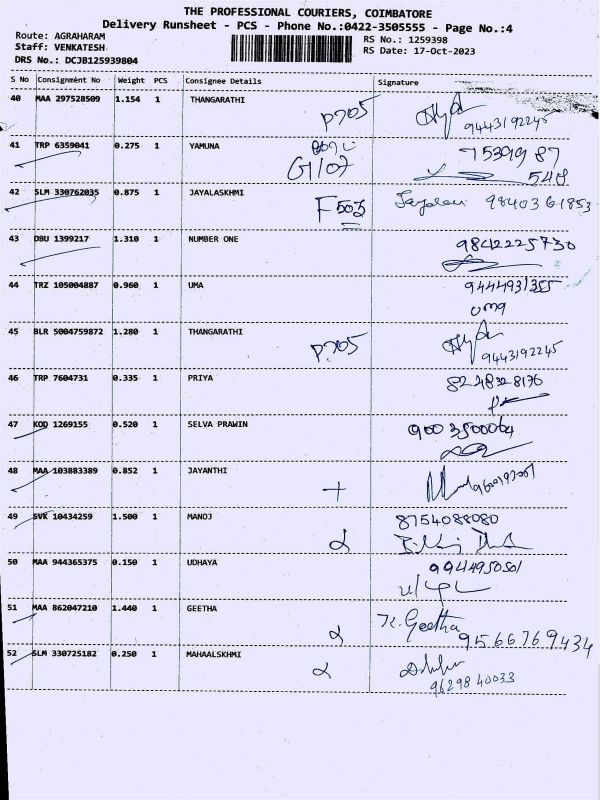 THE PROFESSIONAL COURIERS, COIMBATORE
Delivery Runsheet - PCS - Phone No.:0422-3505555 - Page No.:4
Route: AGRAHARAM
RS No.: 1259398
Staff: VENKATESH
RS Date: 17-Oct-2023
DRS No.: DCJB125939804
S No Consignment No Weight PCS Consignee Details Signature
40 MAA 297528509 1.154 1 THANGARATHI
P705
9443192245
41 TRP 6359041 0.275 1 YAMUNA
G107
548
42 SLM 330762035 0.875 1 JAYALASKHMI
F503 9840361853
43 DBU 1399217 1.310 1 NUMBER ONE
9842225730
44 TRZ 105004887 0.960 1 UMA
9444931355
uma
45 BLR 5004759872 1.280 1 THANGARATHI
P705
9443192245
46 TRP 7604731 0.335 1 PRIYA
47 KOD 1269155 0.520 1 SELVA PRAWIN
9003500064
48 MAA 103883389 0.852 1 JAYANTHI
49 SVK 10434259 1.500 1 MANOJ
8754088080
50 MAA 944365375 0.150 1 UDHAYA
9944950501
51 MAA 862047210 1.440 1 GEETHA
K. Geetha
9566769434
52 SLM 330725182 0.250 1 MAHAALSKHMI
9629840033